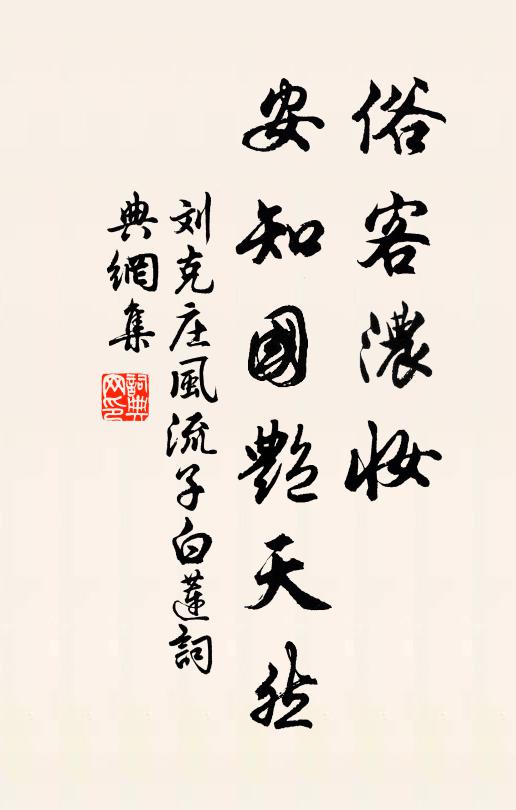 俗客濃妝
安知國艷天然
刘克庄風流子白蓮詞
典網集
詞典
网印